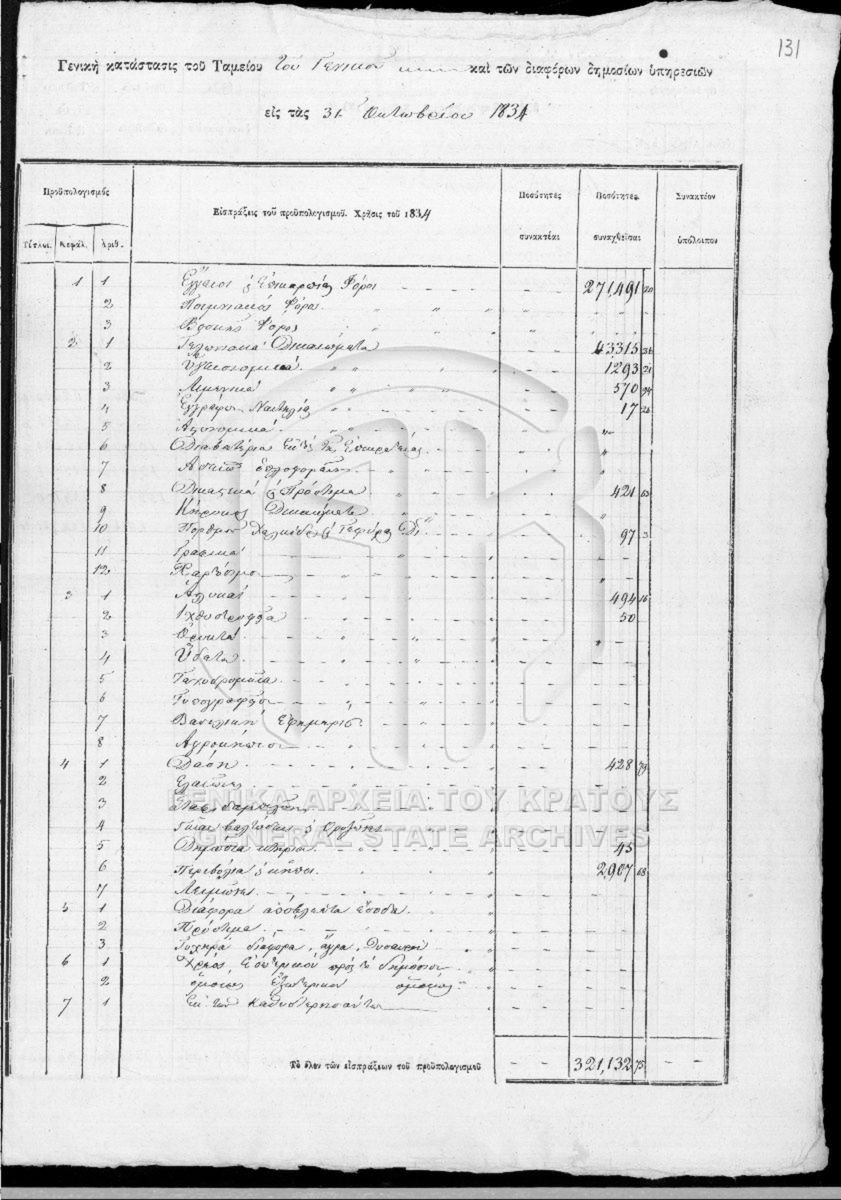 131
Γενικὴ κατάστασις τοῦ Ταμείου τοῦ Γενικοῦ καὶ τῶν διαφόρων δημοσίων ὑπηρεσιῶν
εἰς τὰς 31 Ὀκτωβρίου 1834
Προϋπολογισμὸς
Τίτλοι. Κεφάλ. Ἀριθ.
Εἰσπράξεις τοῦ προϋπολογισμοῦ. Χρῆσις τοῦ 1834
Ποσότητες συνακτέαι
Ποσότητες συναχθεῖσαι
Συνακτέον ὑπόλοιπον
1 1 Ἔγγειοι Ἐπικαρπίας Φόροι 271,491 20
2 Ποιμνιακὸς Φόρος
3 Φόρος
2 1 Τελωνιακὰ Δικαιώματα 43315
2 Ὑγειονομικά 1,293 21
3 Λιμενικά 570
4 Ἐγγράφων Ναυτιλίας 17
5 Ἀστυνομικά
6 Διαβατήρια ἐκτὸς τῆς Ἐπικρατείας
7 ὁπλοφορίας
8 Δικαστικά Πρόστιμα 421 63
9 Δικαιώματα
10 Πορθμεῖον Χαλκίδος Γεφύρας 97 3
11 Γραφικά
12 Χαρτόσημον
3 1 Ἁλυκαί 494 16
2 Ἰχθυοτροφεῖα 50
3 Ὀρυκτά
4 Ὕδατα
5 Ταχυδρομεῖα
6 Τυπογραφεῖον
7 Βασιλικὴ Ἐφημερὶς
8 Ἀγροκήπιον
4 1 Δάση 428 79
2 Ἐλαιῶνες
3 Σταφιδαμπελῶνες
4 Γαῖαι βαλτώδεις Ὀρυζῶνες
5 Δημόσια κτήρια 45
6 Περιβόλια κῆποι 2,907 68
7 Λειμῶνες
5 1 Διάφορα ἀπόβλεπτα ἔσοδα
2 Πρόστιμα
3 Τυχηρὰ διάφορα
6 1 Χρέος ἐσωτερικοῦ πρὸς τὸ δημόσιον
2 ὁμοίως Ἐξωτερικοῦ ὁμοίως
7 1 Ἐκ τῶν καθυστερησάντων
Τὸ ὅλον τῶν εἰσπράξεων τοῦ προϋπολογισμοῦ 321,132 75
ΓΕΝΙΚΑ ΑΡΧΕΙΑ ΤΟΥ ΚΡΑΤΟΥΣ
GENERAL STATE ARCHIVES